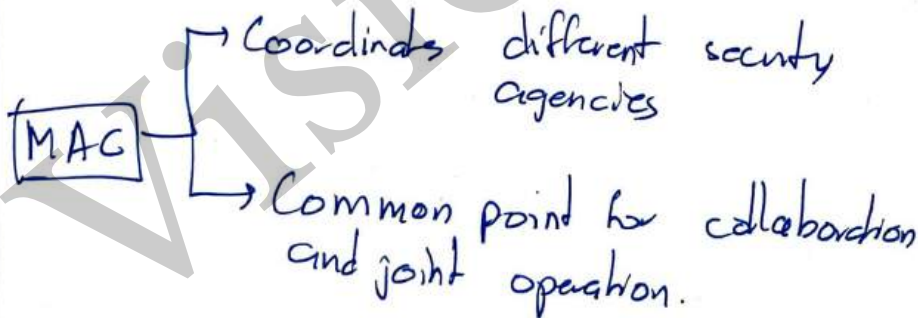 Coordinates different security
agencies
MAC
Common point for collaboration
and joint operation.
Visio